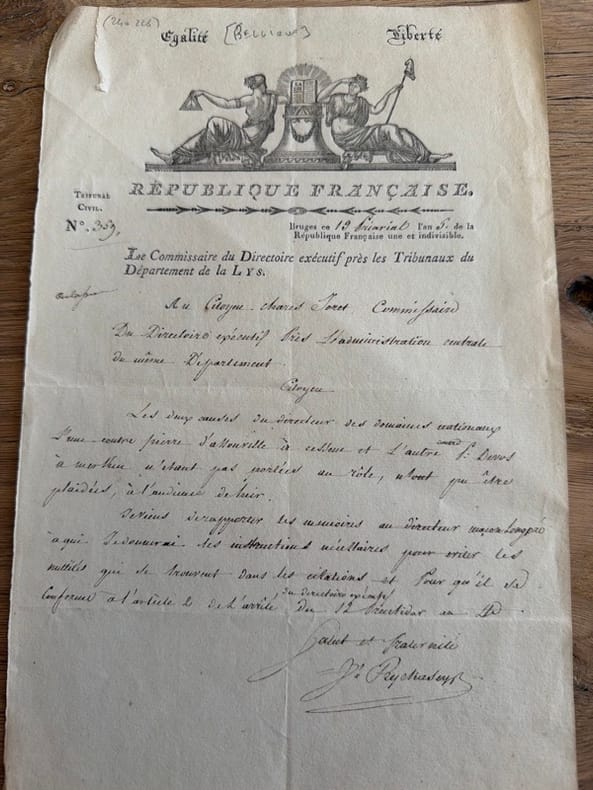 Egalité [BELGIQUE] Liberté
RÉPUBLIQUE FRANÇAISE.
TRIBUNAL
CIVIL.
N°. 359.
Bruges ce 19 prairial l'an 5.e de la
République Française une et indivisible.
Le Commissaire du Directoire exécutif près les Tribunaux du
Département de la LYS.
Au Citoyen charles Joret Commissaire
Du Directoire exécutif Près L'administration centrale
du même Département
Citoyen
Les deux causes du directeur des domaines nationaux
L'une contre pierre d'assonville à et L'autre contre P.
à n'etant pas portées au rôle, n'ont pu être
plaidées, à l'audience de hier.
Je viens de rapporter les memoires au directeur
à qui Je donnerai les instructions nécessaires pour eviter les
nullités qui se trouvent dans les citations et Pour qu'il se
Conforme à l'article 2 de L'arrêté du directoire exécutif Du 12 fructidor an 4e
Salut et fraternité